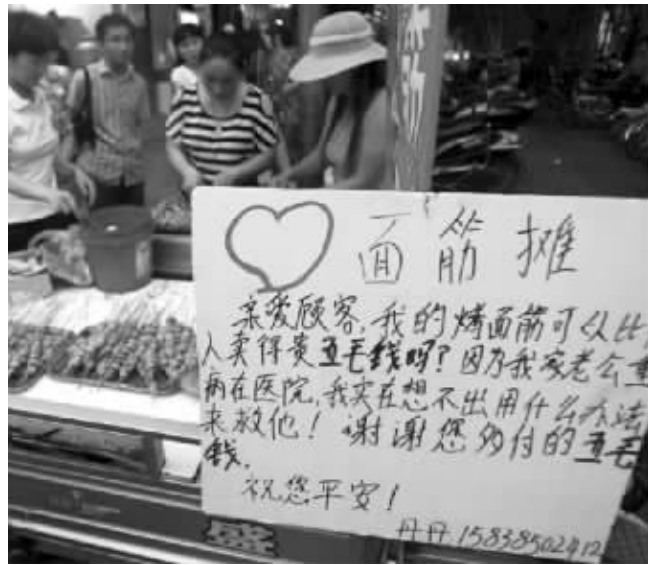 面筋摊
亲爱顾客,我的烤面筋可以比
人卖得贵五毛钱吗?因为我家老公重
病在医院,我实在想不出用什么办法
来救他!谢谢您多付的五毛
钱.
祝您平安!
丹丹 15838502412
盛